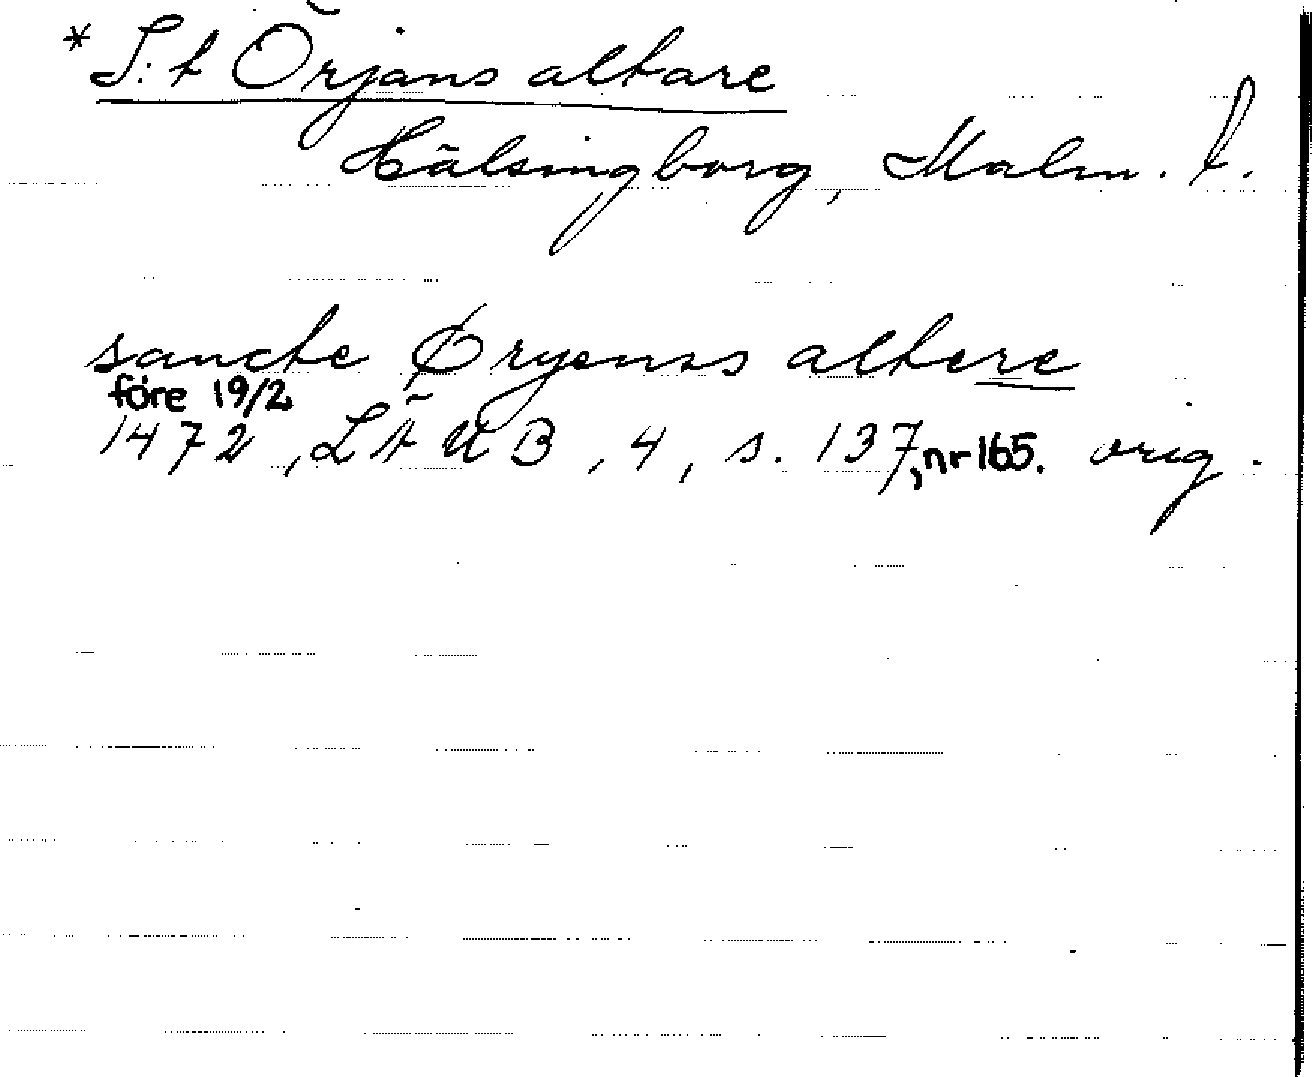 * S:t Örjans altare
Hälsingborg, Malm. l.
sancte Øryenss altere
före 19/2
1472, LÄUB, 4, s. 137, nr 165. orig.